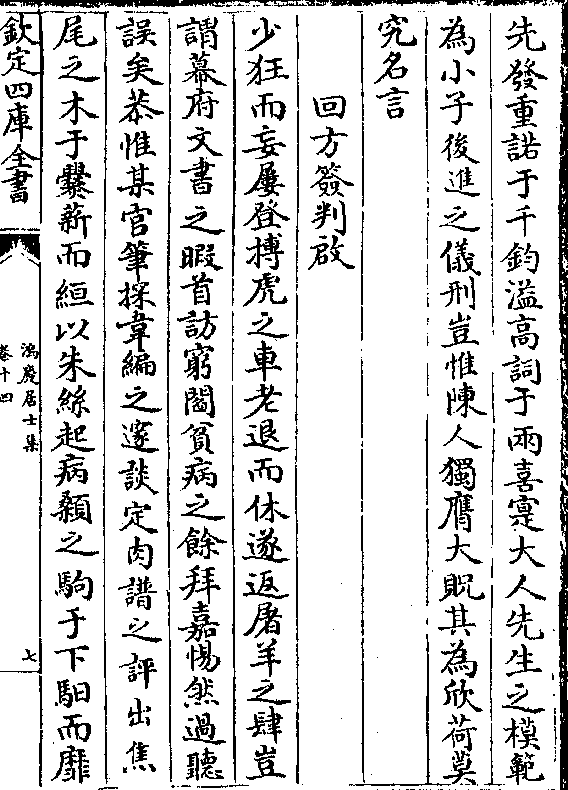 先發重諾于千鈞溢高詞于兩喜寔大人先生之模範
為小子後進之儀刑豈惟陳人獨膺大貺其為欣荷莫
究名言
回方簽判啟
少狂而妄屢登搏虎之車老退而休遂返屠羊之肆豈
謂幕府文書之暇首訪窮閻貧病之餘拜嘉惕然過聽
誤矣恭惟某官筆探韋編之邃談定肉譜之評出焦
尾之木于爨薪而絙以朱絲起病顙之駒于下馹而靡
欽定四庫全書
鴻慶居士集
卷十四
七